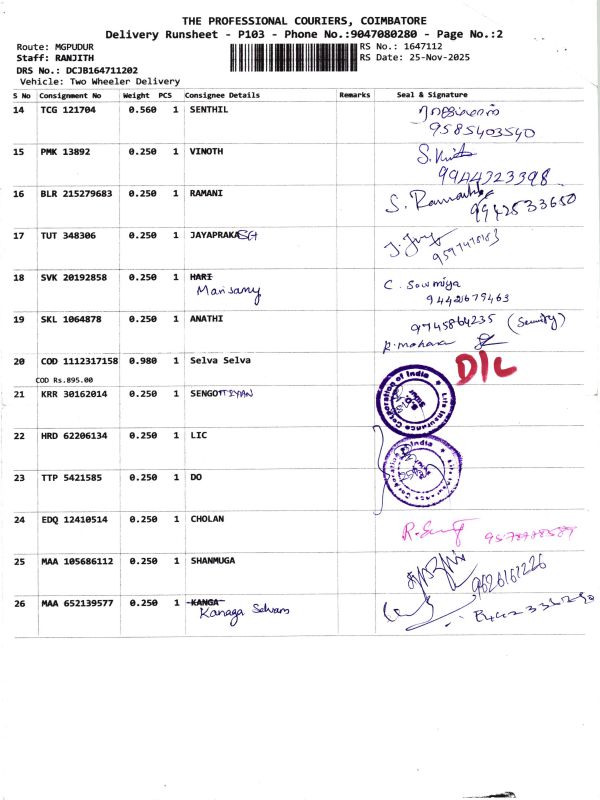 THE PROFESSIONAL COURIERS, COIMBATORE
Delivery Runsheet - P103 - Phone No.:9047080280 - Page No.:2
Route: MGPUDUR
RS No.: 1647112
Staff: RANJITH
RS Date: 25-Nov-2025
DRS No.: DCJB164711202
Vehicle: Two Wheeler Delivery
S No Consignment No Weight PCS Consignee Details Remarks Seal & Signature
14 TCG 121704 0.560 1 SENTHIL
9585403540
15 PMK 13892 0.250 1 VINOTH
9944323398
16 BLR 215279683 0.250 1 RAMANI S.
9942533650
17 TUT 348306 0.250 1 JAYAPRAKASH
18 SVK 20192858 0.250 1 HARI C. Sowmiya
Marisamy 9442679463
19 SKL 1064878 0.250 1 ANATHI 9745864235 (Security)
20 COD 1112317158 0.980 1 Selva Selva D/L
COD Rs.895.00
21 KRR 30162014 0.250 1 SENGOTTIYAN
Life Insurance Corporation of India
22 HRD 62206134 0.250 1 LIC
Life Insurance Corporation of India
23 TTP 5421585 0.250 1 DO
24 EDQ 12410514 0.250 1 CHOLAN
25 MAA 105686112 0.250 1 SHANMUGA
26 MAA 652139577 0.250 1 KANGA
Kanaga Selvam